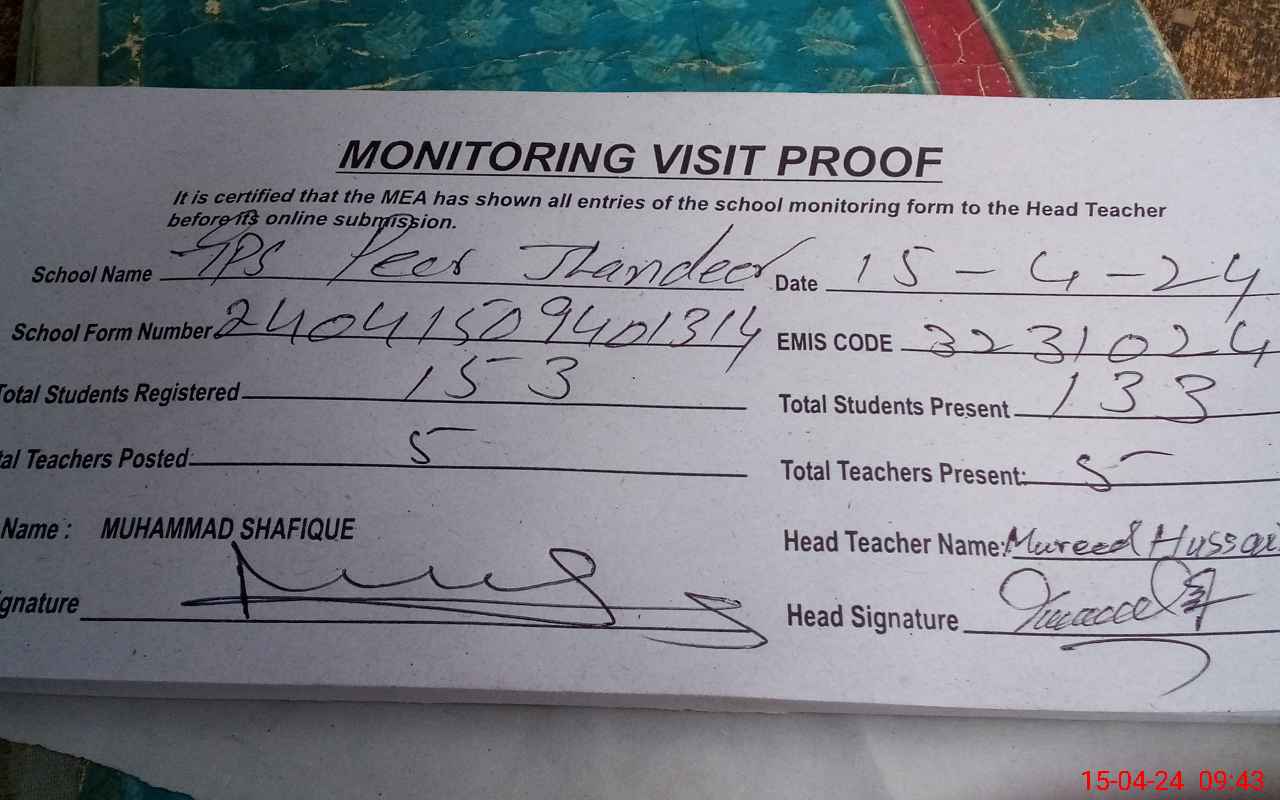 MONITORING VISIT PROOF
It is certified that the MEA has shown all entries of the school monitoring form to the Head Teacher
before its online submission.
School Name GPS Peer Jhandeer Date 15-4-24
School Form Number 24041509401314 EMIS CODE 3231024
Total Students Registered 153 Total Students Present 133
tal Teachers Posted 5 Total Teachers Present: 5
Name : MUHAMMAD SHAFIQUE Head Teacher Name: Mureed Hussai
gnature Head Signature
15-04-24 09:43